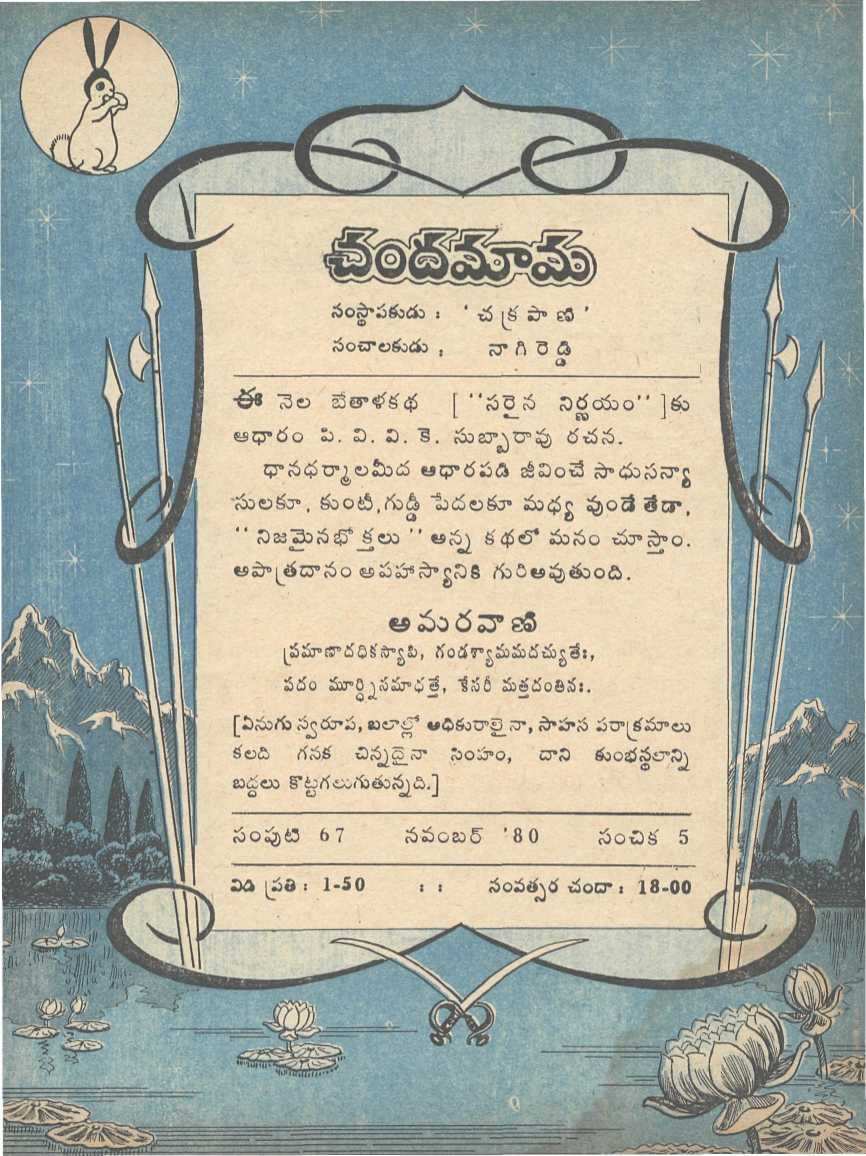 చందమామ
సంస్థాపకుడు : ' చక్రపాణి '
సంచాలకుడు : నాగిరెడ్డి
ఈ నెల బేతాళకథ [ ''సరైన నిర్ణయం'' ]కు
ఆధారం పి. వి. వి. కె. సుబ్బారావు రచన.
ధానధర్మాలమీద ఆధారపడి జీవించే సాధుసన్యా
సులకూ, కుంటీ,గుడ్డీ పేదలకూ మధ్య వుండే తేడా,
'' నిజమైనభోక్తలు '' అన్న కథలో మనం చూస్తాం.
అపాత్రదానం అపహాస్యానికి గురిఅవుతుంది.
అమరవాణి
ప్రమాణాదధికస్యాపి, గండశ్యామమదచ్యుతేః,
పదం మూర్ధ్నిసమాధత్తే, కేసరీ మత్తదంతినః.
[ఏనుగు స్వరూప, బలాల్లో అధికురాలైనా, సాహస పరాక్రమాలు
కలది గనక చిన్నదైనా సింహం, దాని కుంభస్థలాన్ని
బద్దలు కొట్టగలుగుతున్నది.]
సంపుటి 67 నవంబర్ '80 సంచిక 5
విడి ప్రతి : 1-50 : : సంవత్సర చందా : 18-00